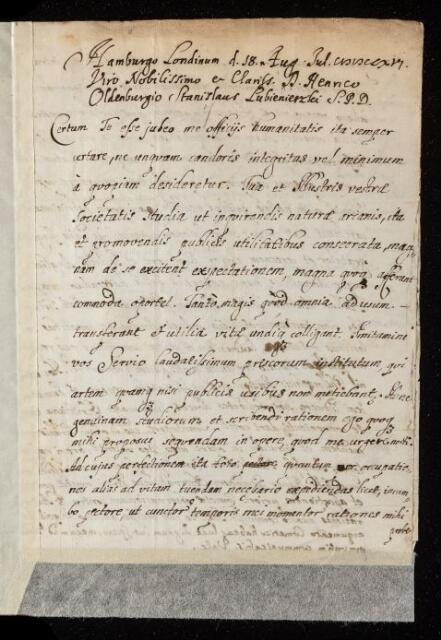 Hamburgo Londinum d. 18. Aug. Jul.
Viro Nobilissimo & Clariss. D. Henrico
Oldenburgio Stanislaus Lubienietzki S.P.D.
Certum Te esse jubeo me officijs humanitatis ita semper
certare, ne unquam candoris integritas vel minimum
à quoqam desideretur. Tua et Illustris vestræ
Societatis studia ut inquirendis naturæ arcanis, ita
et promovendis publicis utilitatibus consecrata, mag
nam de se excitent expectationem, magna quoq afferant
commoda oportet. Tanto magis quod omnia ad usum
transferant et utilia vitæ undiq colligant. Imitamini
vos Servio laudatissimum priscorum institutum, qui
artem quamq nisi publicis usibus non metiebant.
genuinam studiorum et scribendi rationem ego quoq
mihi proposui sequendam in opere, quod me urget
cujus perfectionem ita toto quantum per occupatio
nes alias ad vitam tuendam necessario expediendas licet, incum
bo pectore ut cunctor temporis mei momentor rationes mihi